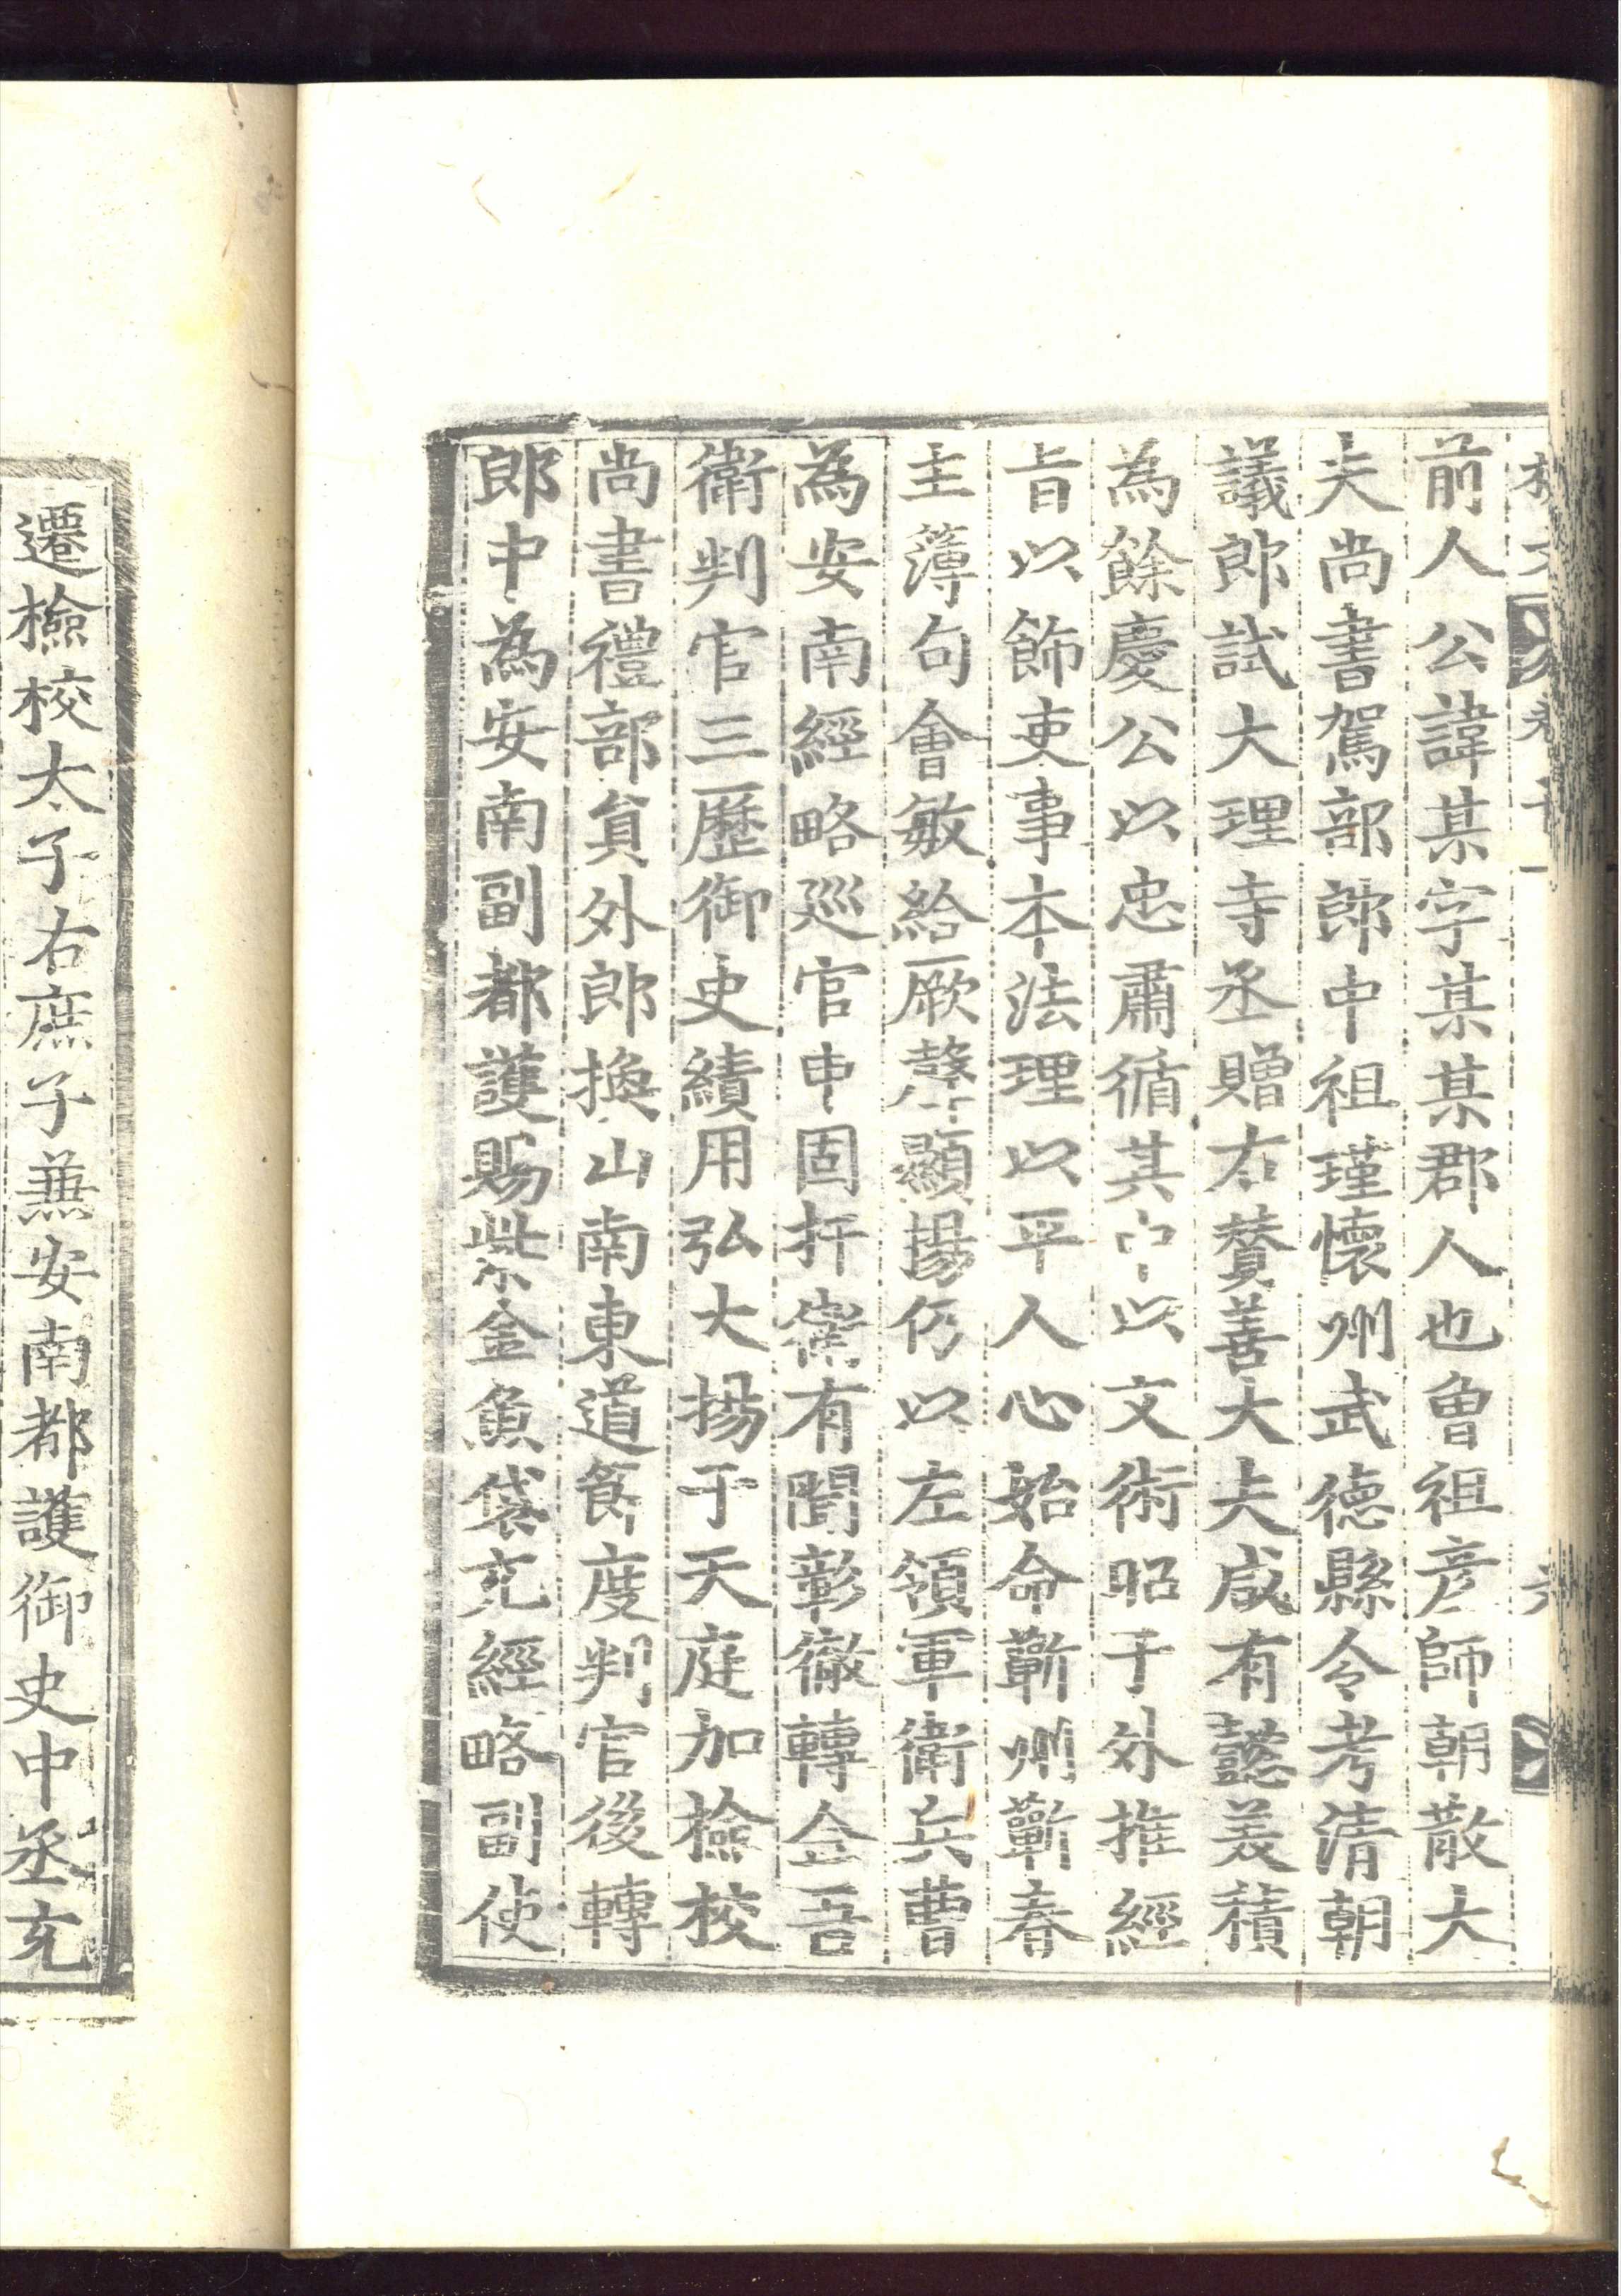 前人公諱某字某某郡人也曾祖彦師朝散大
夫尚書駕部郎中祖瑾懷州武德縣令考清朝
議郎試大理寺丞贈右贊善大夫咸有懿美積
為餘慶公以忠肅循其中以文術昭于外推經
旨以飾吏事本法理以平人心始命蘄州蘄春
主簿句會敏給厥聲顯揚仍以左領軍衛兵曹
為安南經略巡官申固扞衛有聞彰徹轉金吾
衛判官三歷御史績用弘大揚于天庭加檢校
尚書禮部貟外郎換山南東道節度判官後轉
郎中為安南副都護賜紫金魚袋充經略副使
遷檢校太子右庶子兼安南都護御史中丞充